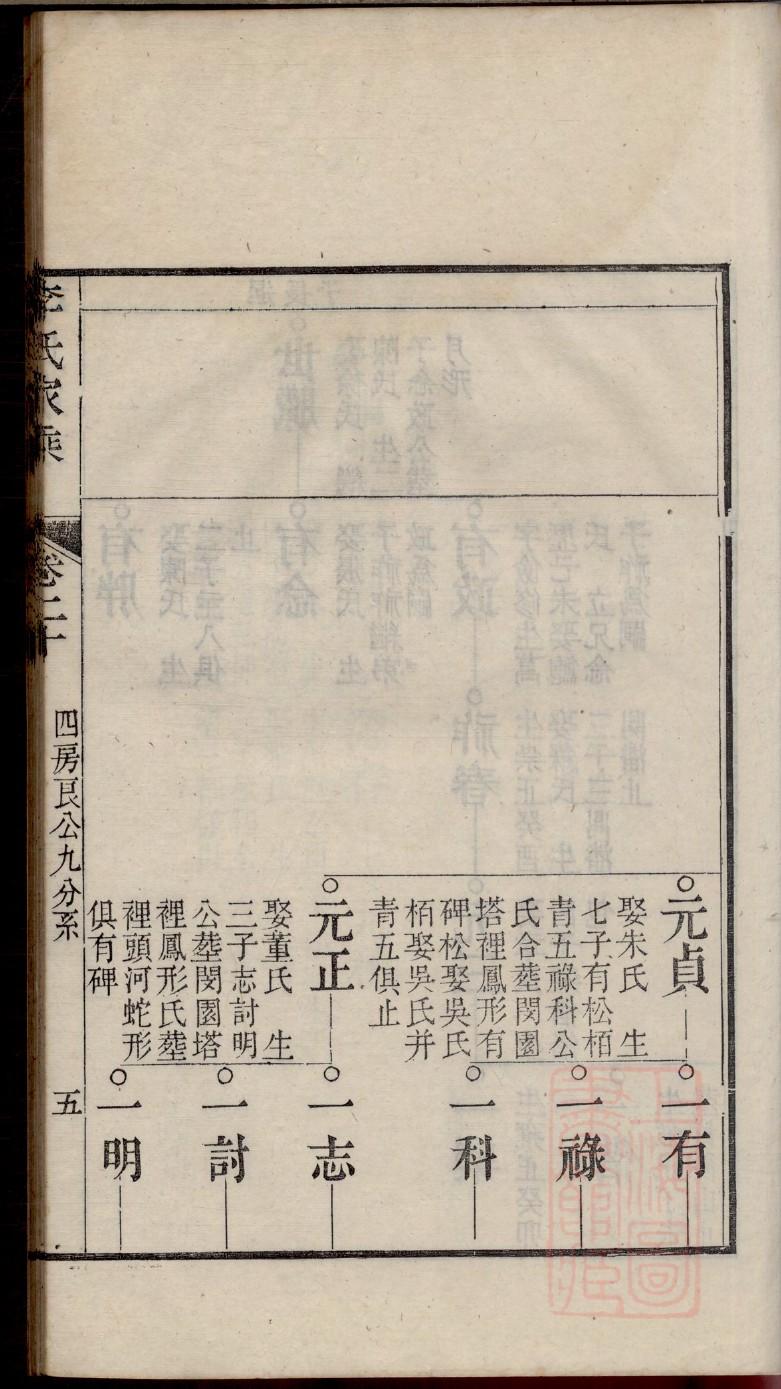 元貞
娶朱氏　生
七子有松栢
青五祿科公
氏合塟閔園
塔裡鳳形有
碑松娶吳氏
栢娶吳氏并
青五俱止
元正
娶董氏　生
三子志討明
公塟閔園塔
裡鳳形氏塟
裡頭河蛇形
俱有碑
一有
一祿
一科
一志
一討
一明
李氏家乘
卷二十
四房良公九分系
五